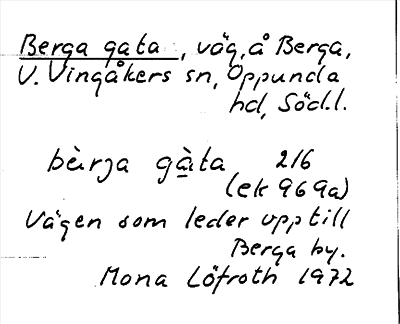 Berga gata, väg, å Berga,
V. Vingåkers sn, Oppunda
hd, Södl.
bèrja gàta 216
(ek 969a)
Vägen som leder upp till
Berga by.
Mona Löfroth 1972